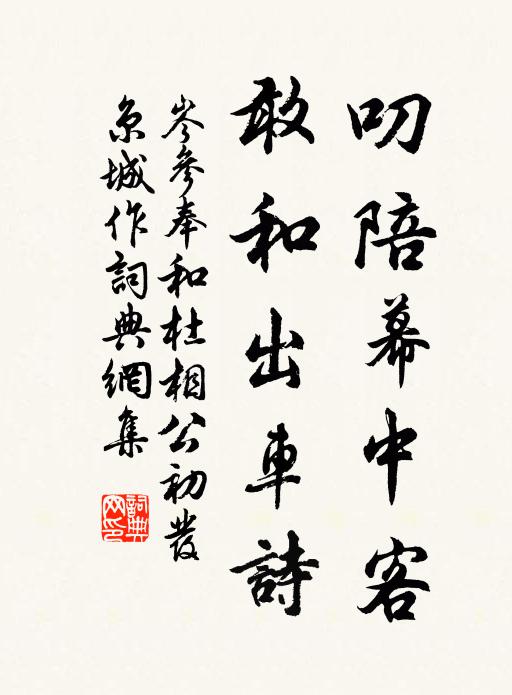 叨陪幕中客
敢和出車詩
岑參奉和杜相公初發
京城作詞典網集
詞典網印